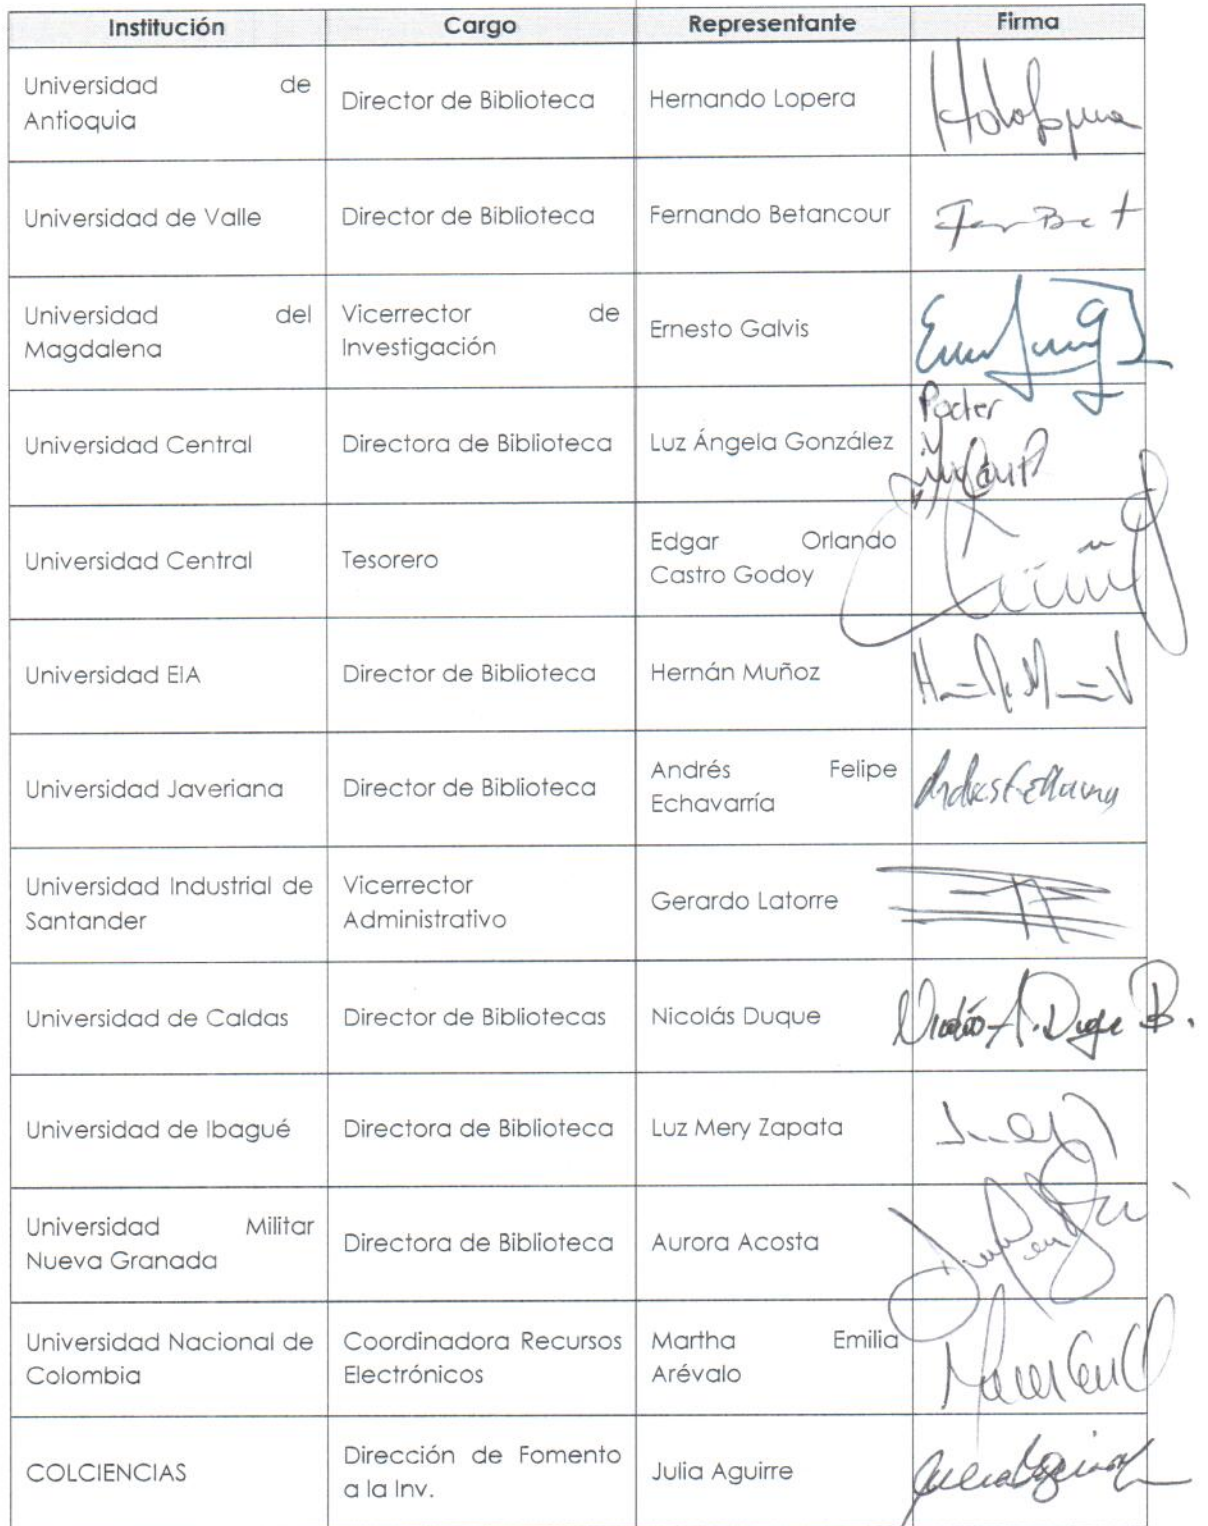 Institución Cargo Representante Firma
Universidad de
Antioquia
Director de Biblioteca
Hernando Lopera
Universidad de Valle
Director de Biblioteca
Fernando Betancour
Universidad del
Magdalena
Vicerrector de
Investigación
Ernesto Galvis
Universidad Central
Directora de Biblioteca
Luz Ángela González
Poder
Universidad Central
Tesorero
Edgar Orlando
Castro Godoy
Universidad EIA
Director de Biblioteca
Hernán Muñoz
Universidad Javeriana
Director de Biblioteca
Andrés Felipe
Echavarría
Universidad Industrial de
Santander
Vicerrector
Administrativo
Gerardo Latorre
Universidad de Caldas
Director de Bibliotecas
Nicolás Duque
Nicolás A. Duque B.
Universidad de Ibagué
Directora de Biblioteca
Luz Mery Zapata
Universidad Militar
Nueva Granada
Directora de Biblioteca
Aurora Acosta
Universidad Nacional de
Colombia
Coordinadora Recursos
Electrónicos
Martha Emilia
Arévalo
COLCIENCIAS
Dirección de Fomento
a la Inv.
Julia Aguirre